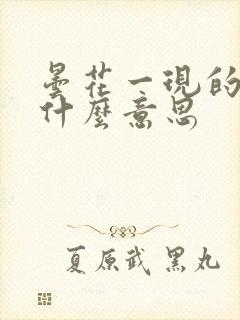 曇花一現的
什麼意思
夏原武 黑丸